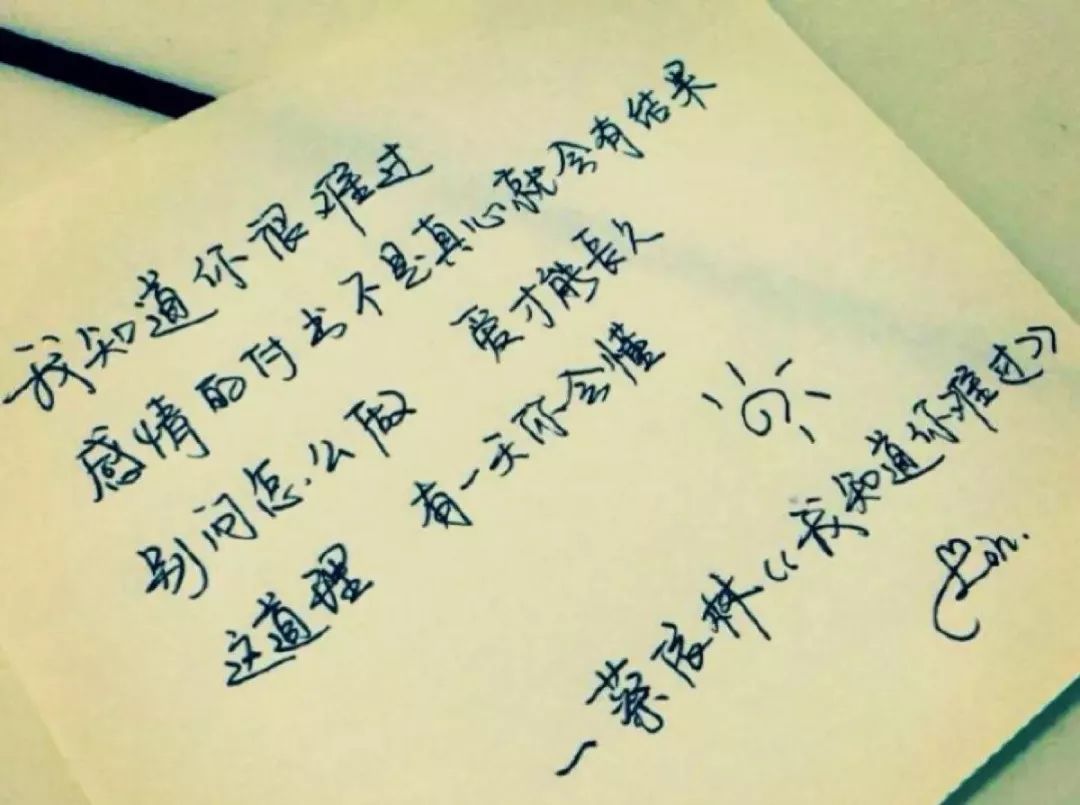 我知道你很难过
感情的付出不是真心就会有结果
别问怎么做 爱才能長久
这道理 有一天你会懂
一蔡依林《我知道你难过》